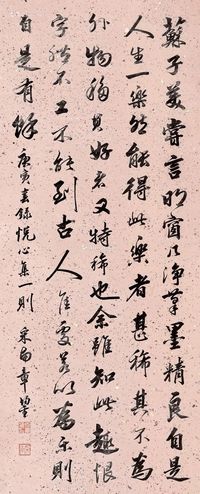 蘇子美嘗言明窗凈几筆墨精良自是
人生一樂然能得此樂者甚稀其不為
外物移其好者又特稀也余雖知此趣恨
字體不工不能到古人佳處若以為樂則
自是有餘
庚寅春錄悅心集一則 采白章